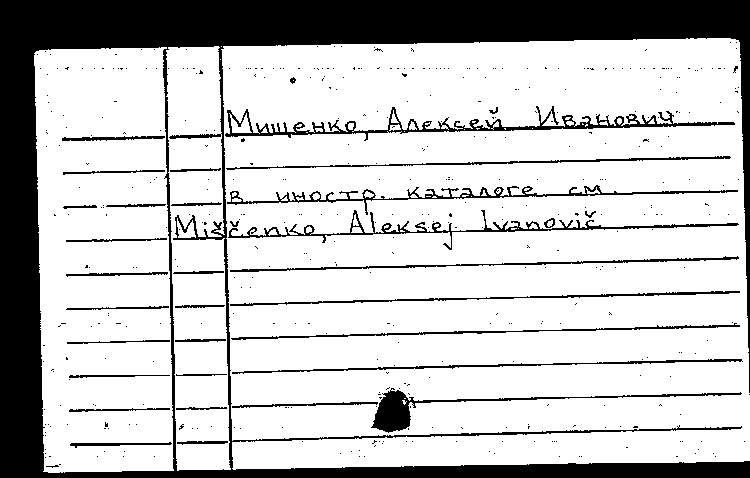 Мищенко, Алексей Иванович
в иностр. каталоге см.
Miščenko, Aleksej Ivanovič